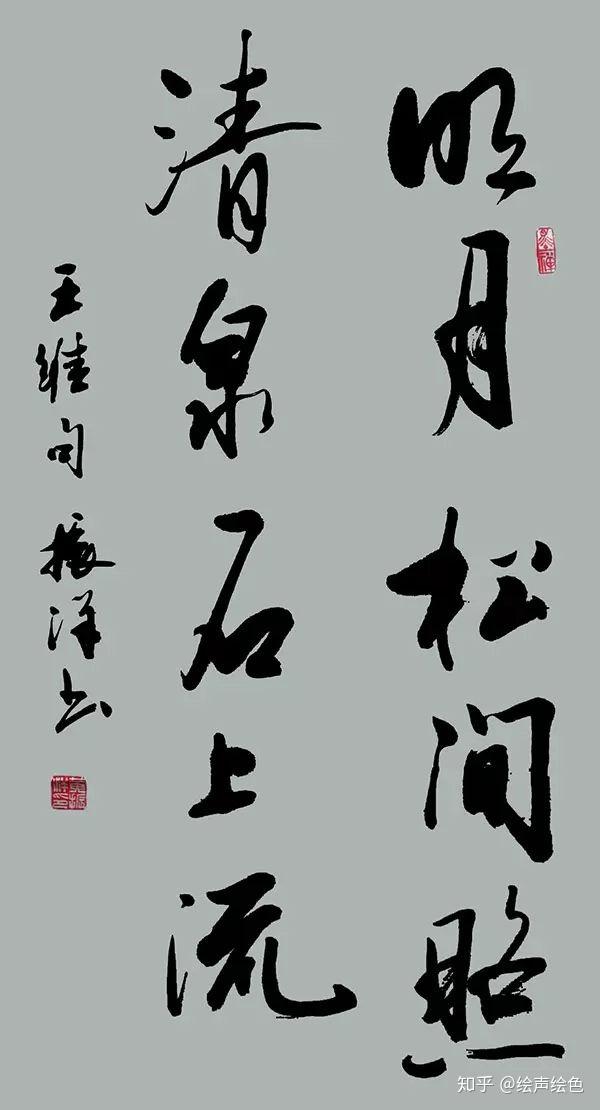 明月松间照
清泉石上流
王维句 振洋书
知乎 @绘声绘色